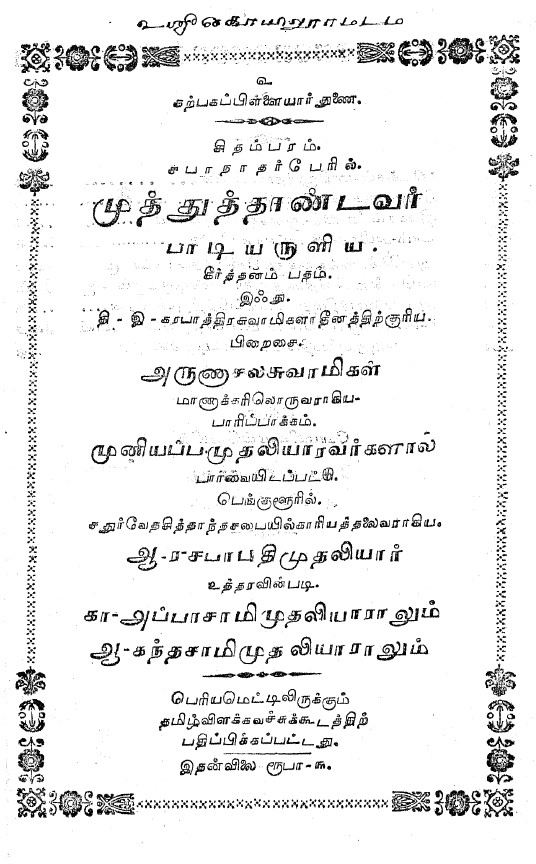 உ
கற்பகப்பிள்ளையார் துணை.
சிதம்பரம்.
சபாநாதர்பேரில்.
முத்துத்தாண்டவர்
பாடியருளிய.
கீர்த்தனம் பதம்.
இஃது.
தி - இ - கரபாத்திரசுவாமிகளாதீனத்திற்குரிய.
பிறைசை.
அருணாசலசுவாமிகள்
மாணாக்கரிலொருவராகிய-
பாரிப்பாக்கம்.
முனியப்பமுதலியாரவர்களால்
பார்வையிடப்பட்டு.
பெங்களூரில்.
சதுர்வேதசித்தாந்தசபையில்காரியத்தலைவராகிய.
ஆ-ர-சபாபதிமுதலியார்
உத்தரவின்படி.
கா-அப்பாசாமிமுதலியாராலும்
ஆ-கந்தசாமிமுதலியாராலும்
பெரியமெட்டிலிருக்கும்
தமிழ்விளக்கவச்சுக்கூடத்திற்
பதிப்பிக்கப்பட்டது.
இதன்விலை ரூபா-௩.